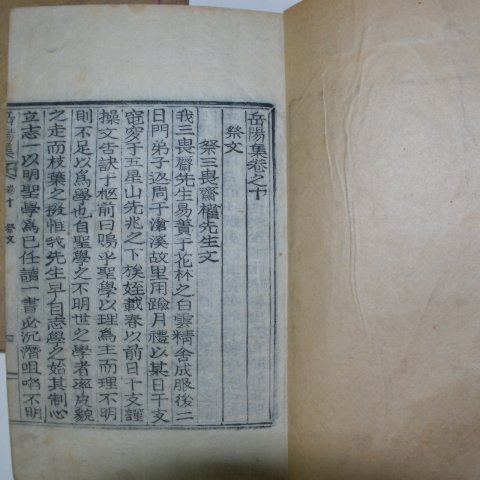 岳陽集卷之十
祭文
祭三畏齋權先生文
我三畏齋先生易簀于花林之白雲精舍成服後二
日門弟子返周于滄溪故里用踰月禮以某日干支
窆于五星山先兆之下族姪載春以前日干支謹
操文告訣于柩前曰嗚乎聖學以理為主而理不明
則不足以為學也自聖學之不明世之學者率皮貌
之走而枝葉之掇惟我先生早自志學之始其制心
立志一以明聖學為己任讀一書必沉潛咀嚼不明
岳陽集 卷十 祭文